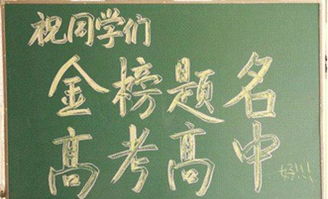 祝同学们
金榜题名
高考高中
好!!!